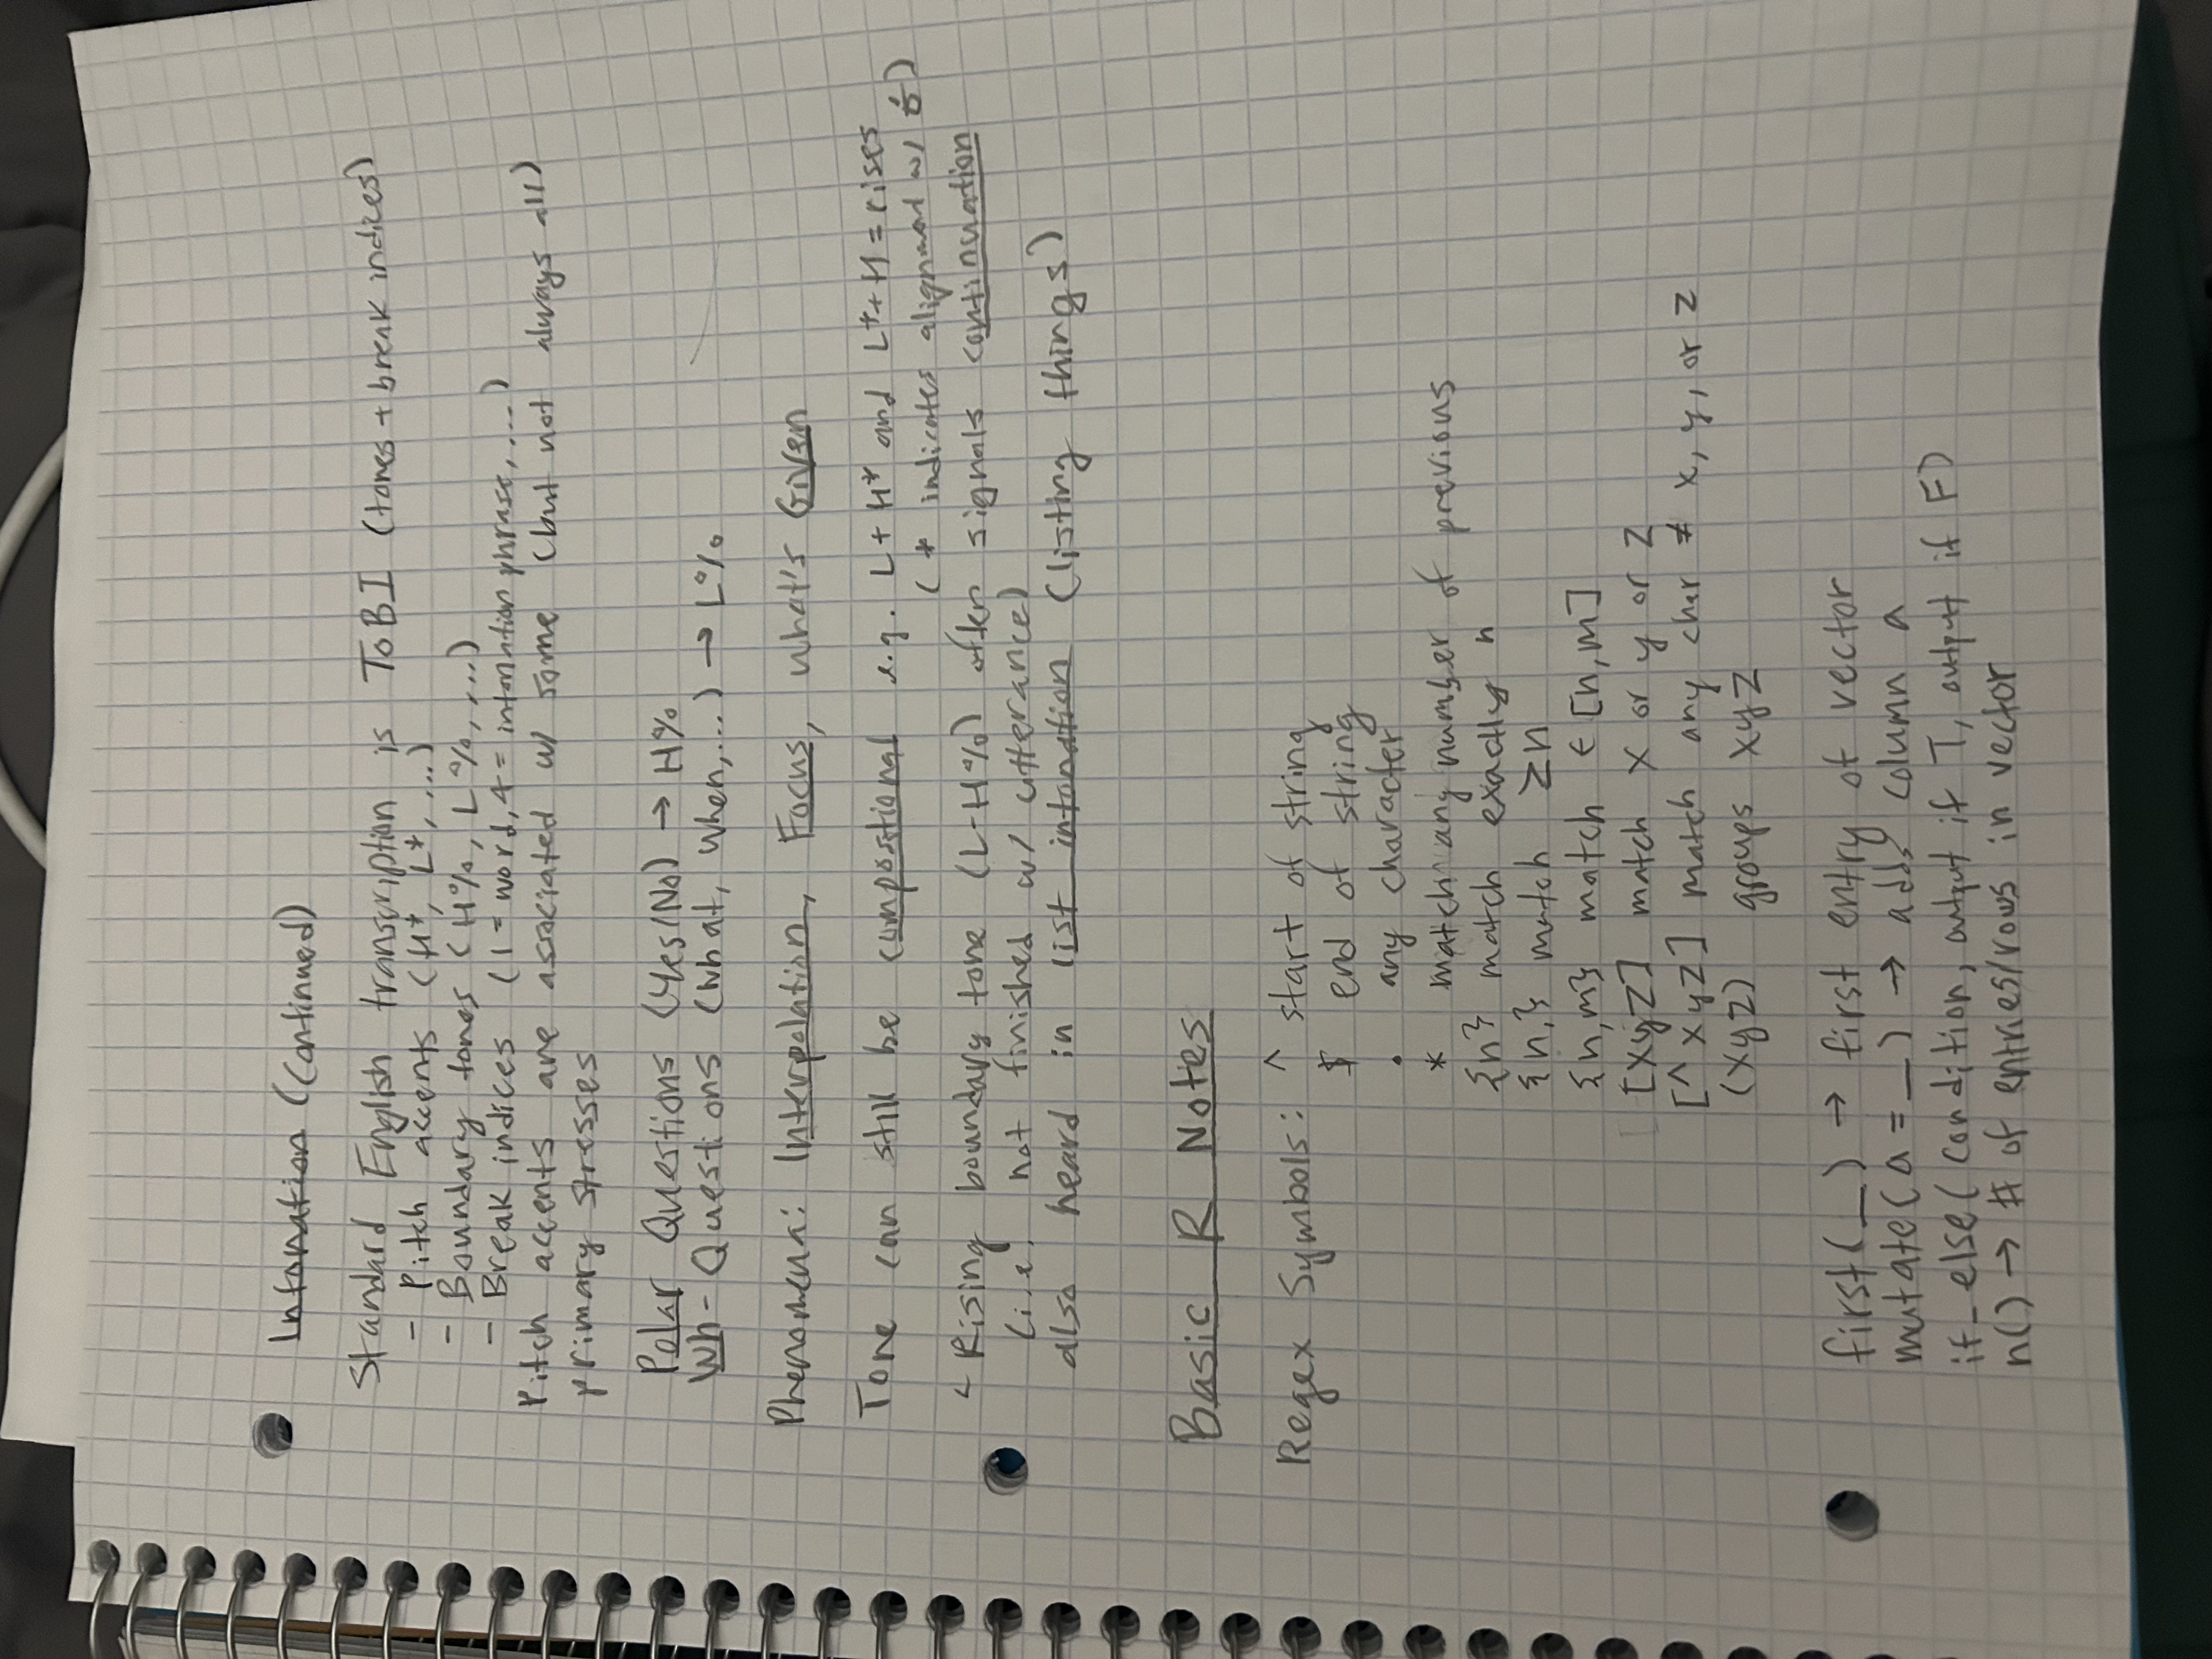 Intonation (Continued)
Standard English transcription is ToBI (tones + break indices)
- Pitch accents (H*, L*, ...)
- Boundary tones (H%, L%, ...)
- Break indices (1 = word, 4 = intonation phrase, ...)
Pitch accents are associated w/ some (but not always all)
primary stresses
Polar Questions (Yes/No) → H%
Wh- Questions (What, When, ...) → L%
Phenomena: Interpolation, Focus, what's Given
Tone can still be compositional e.g. L + H* and L*+H = rises
(* indicates alignment w/ σ́)
- Rising boundary tone (L-H%) often signals continuation
(i.e. not finished w/ utterance)
also heard in list intonation (listing things)
Basic R Notes
Regex Symbols: ^ start of string
$ end of string
. any character
* match any number of previous
{n} match exactly n
{n,} match ≥n
{n,m} match ∈ [n,m]
[xyz] match x or y or z
[^xyz] match any char ≠ x, y, or z
(xyz) groups xyz
first(_) → first entry of vector
mutate(a = _) → adds column a
if_else(condition, output if T, output if F)
n() → # of entries/rows in vector